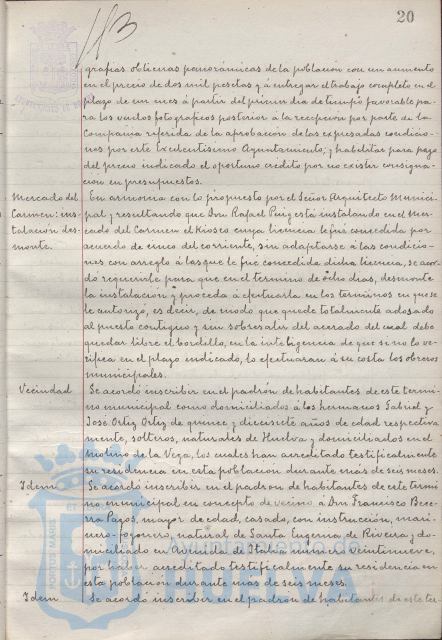 20
grafias oblicuas panorámicas de la población con un aumento
en el precio de dos mil pesetas y á entregar el trabajo completo en el
plazo de un mes á partir del primer dia de tiempo favorable pa-
ra los vuelos fotográficos posterior á la recepción por parte de la
Compañia referida de la aprobación de las expresadas condicio-
nes por este Excelentisimo Ayuntamiento; y habilitar para pago
del precio indicado el oportuno crédito por no existir consigna-
ción en presupuestos.
Mercado del
Carmen: ins-
talación des-
monte.
En armonia con lo propuesto por el Señor Arquitecto Munici-
pal y resultando que Don Rafael Puig está instalando en el Mer-
cado del Carmen el Kiosco cuya licencia le fué concedida por
acuerdo de cinco del corriente, sin adaptarse á las condicio-
nes con arreglo á las que le fué concedida dicha licencia, se acor-
dó requerirle para que en el termino de ocho dias, desmonte
la instalación y proceda á efectuarla en los terminos en que se
le autorizó, es decir, de modo que quede totalmente adosado
al puesto contiguo y sin sobresalir del acerado del cual debe
quedar libre el bordillo, en la inteligencia de que si no lo ve-
rifica en el plazo indicado, lo efectuarán á su costa los obreros
municipales.
Vecindad
Se acordó inscribir en el padrón de habitantes de este termi-
no municipal como domiciliados á los hermanos Gabriel y
José Ortiz Ortiz de quince y diecisiete años de edad respectiva
mente, solteros, naturales de Huelva y domiciliados en el
Molino de la Vega, los cuales han acreditado testificalmente
su residencia en esta población durante más de seis meses.
Idem
Se acordó inscribir en el padrón de habitantes de este térmi
no municipal en concepto de vecino á Don Francisco Bece-
rra Pagos, mayor de edad, casado, con instrucción, mari-
nero-fogonero, natural de Santa Eugenia de Riveira y do-
miciliado en Avenida de Italia número veintinueve,
por haber acreditado testificalmente su residencia en
esta población durante más de seis meses.
Idem
Se acordó inscribir en el padrón de habitantes de este tér-
PORTUS MARIS
Ayuntamiento de
HUELVA